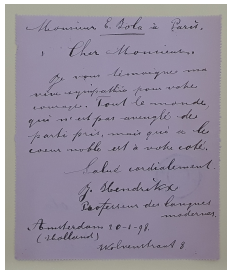 Monsieur E. Zola à Paris.
Cher Monsieur,
Je vous témoigne ma
vive sympathie pour votre
courage. Tout le monde
qui n'est pas aveuglé de
parti pris, mais qui a le
coeur noble est à votre côté.
Salut cordialement.
J. Hendrikx
Professeur de langues
modernes
Amsterdam 20-1-98.
(Holland)
Wolvenstraat 8